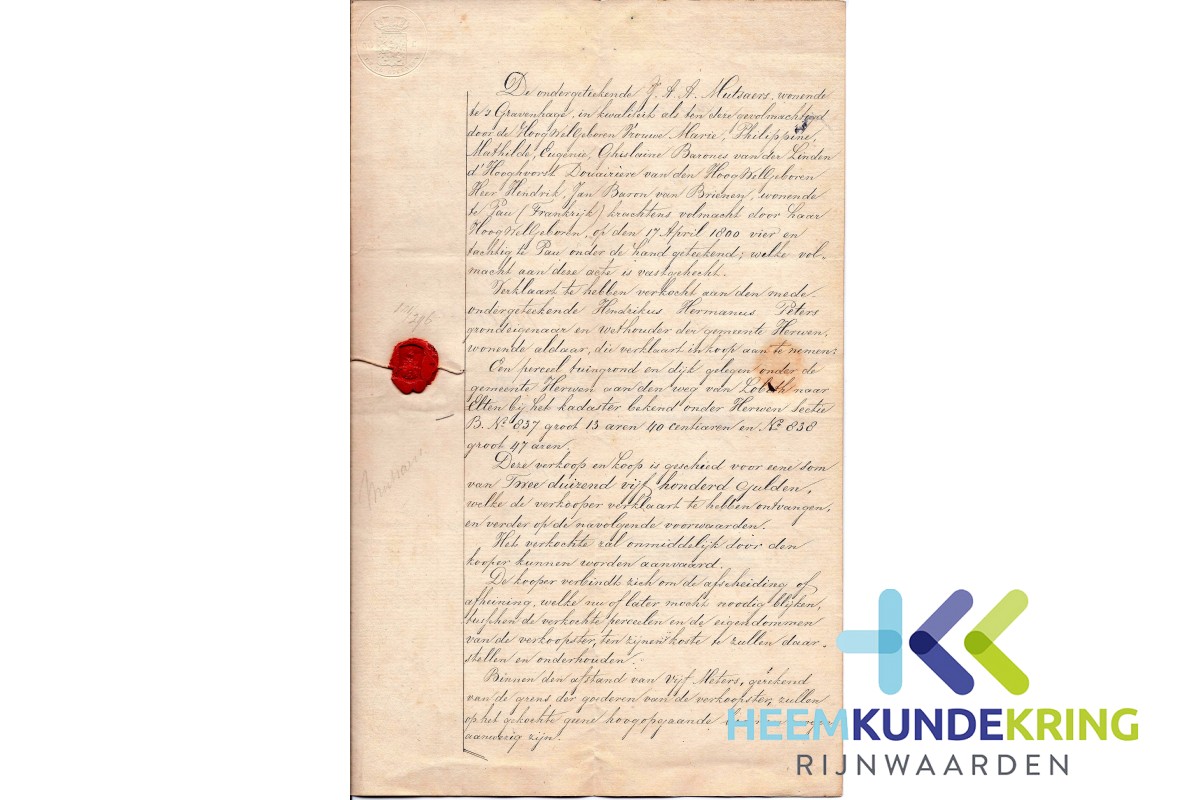 De ondergeteekende F. A. A. Mutsaers, wonende
te 's Gravenhage, in kwaliteit als ten deze gevolmachtigd
door de HoogWelGeboren Vrouwe Marie, Philippine,
Mathilde, Eugenie, Ghislaine Barones van der Linden
d'Hooghvorst Douairière van den HoogWelGeboren
Heer Hendrik, Jan Baron van Brienen, wonende
te Pau (Frankrijk) krachtens volmacht door haar
HoogWelGeboren, op den 17 April 1800 vier en
tachtig te Pau onder de hand geteekend; welke vol-
macht aan deze acte is vastgehecht.
Verklaart te hebben verkocht aan den mede-
ondergeteekende Hendrikus Hermanus Peters
grondeigenaar en wethouder der gemeente Herwen,
wonende aldaar, die verklaart in koop aan te nemen:
Een perceel tuingrond en dijk gelegen onder de
gemeente Herwen aan den weg van Lobith naar
Elten bij het kadaster bekend onder Herwen Sectie
B. No. 837 groot 13 aren 40 centiaren en No. 838
groot 47 aren.
Deze verkoop en koop is geschied voor eene som
van Twee duizend vijf honderd Gulden,
welke de verkooper verklaart te hebben ontvangen,
en verder op de navolgende voorwaarden.
Het verkochte zal onmiddelijk door den
kooper kunnen worden aanvaard.
De kooper verbindt zich om de afscheiding of
afheining, welke nu of later mocht noodig blijken,
tusschen de verkochte perceelen en de eigendommen
van de verkoopster, ten zijnen koste te zullen daar-
stellen en onderhouden.
Binnen den afstand van vijf Meters, gerekend
van de grens der goederen van de verkoopster, zullen
op het gekochte geene hoogopgaande boomen mogen
aanwezig zijn.
Mutsaers
HEEMKUNDEKRING
RIJNWAARDEN